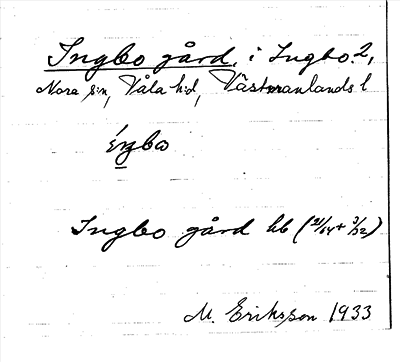 Ingbo gård, i Ingbo 2,
Nora s:n, Våla h:d, Västmanlands l
Ingbo gård hb (21/64 + 3/32)
M. Eriksson 1933